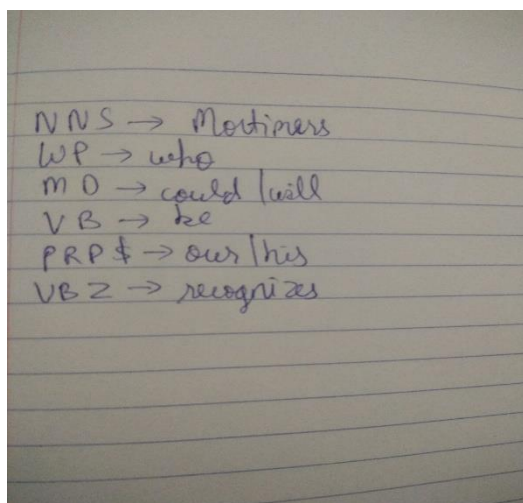 NNS → Mortimers
WP → who
MD → could | will
VB → be
PRP$ → our | his
VBZ → recognizes